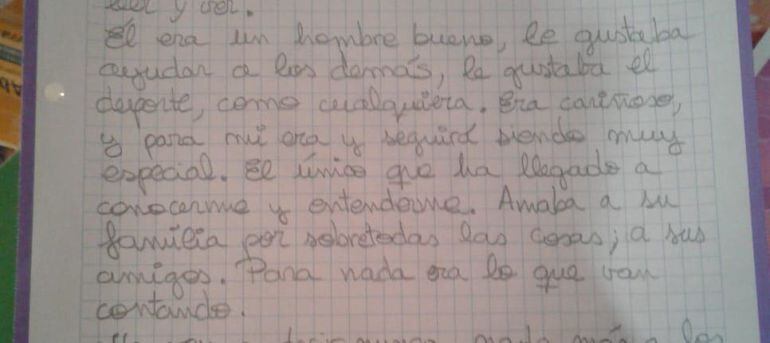 leer y ver.
El era un hombre bueno, le gustaba
ayudar a los demás, le gustaba el
deporte, como cualquiera. Era cariñoso,
y para mi era y seguirá siendo muy
especial. El único que ha llegado a
conocerme y entenderme. Amaba a su
familia por sobretodas las cosas; a sus
amigos. Para nada era lo que van
contando.